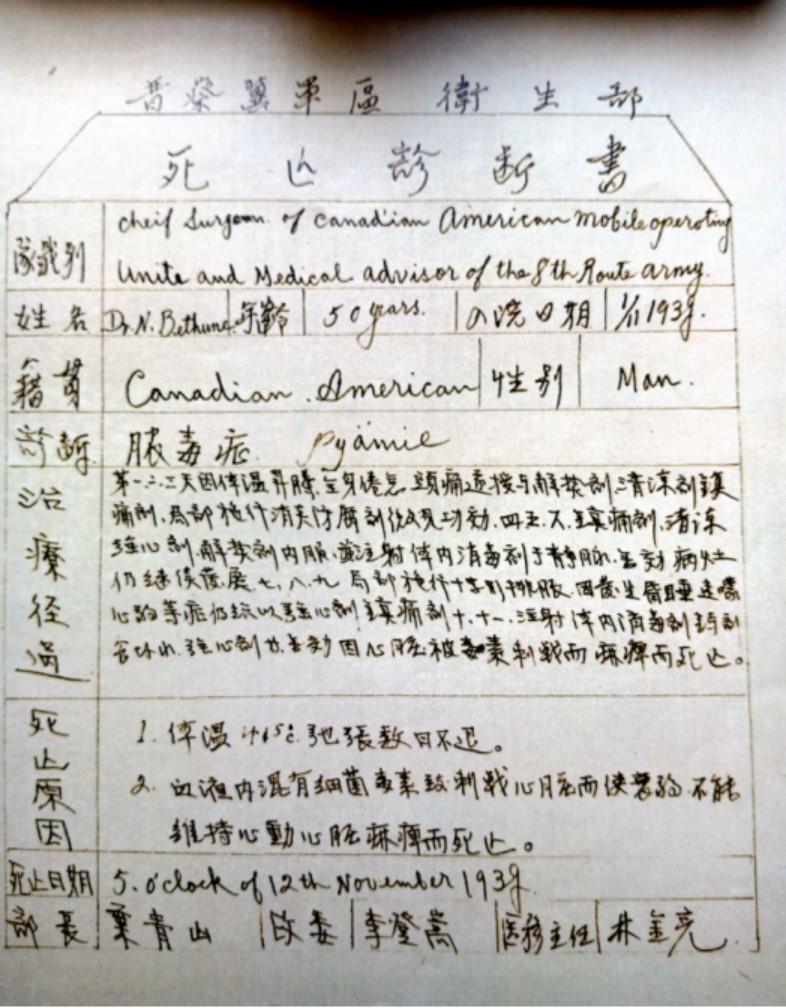 晋察冀軍區 衛生部
死亡診斷書
隊職別
cheif Surgeon of Canadian American mobile operating
Unite and Medical advisor of the 8th Route army.
姓名 Dr. N. Bethune 年齡 50 years. 入院日期 1/11 1939.
籍貫 Canadian. American 性别 Man.
診斷 脓毒症 Pyämie
治療径過
第一.二.三天因体温昇騰.全身倦怠 頭痛 遂投与解热剤.清涼剤鎮
痛剤.局部施行消炎防腐剤 四.五.六.鎮痛剤.清涼
强心剤.解热剤内服.並注射体内消毒剤于静脈.無効 病灶
仍继续蔓展 七.八.九 局部施行十字形排脓.因發生昏睡
心弱等症仍 以强心剤 鎮痛剤 十.十一.注射体内消毒剤
强心剤 無効 因心脏被毒素刺戟而麻痺而死亡。
死亡原因
1. 体温 弛張数日不退。
2. 血液内混有细菌毒素致刺戟心脏而使衰弱.不能
維持心動心脏麻痺而死亡。
死亡日期 5. o'clock of 12th November 1939.
部長 葉青山 政委 李登嵩 医務主任 林金亮